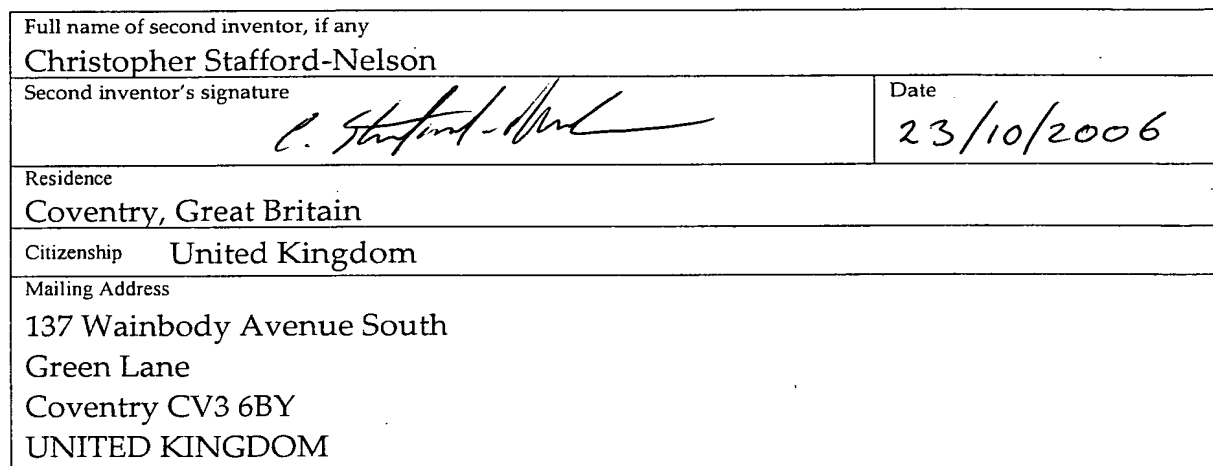 Full name of second inventor, if any
Christopher Stafford-Nelson
Second inventor's signature
C. Stafford-Nel
Date
23/10/2006
Residence
Coventry, Great Britain
Citizenship United Kingdom
Mailing Address
137 Wainbody Avenue South
Green Lane
Coventry CV3 6BY
UNITED KINGDOM